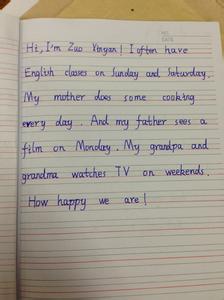 Hi, I'm Zuo Xinyan! I often have
English classes on Sunday and Saturday.
My mother does some cooking
every day. And my father sees a
film on Monday. My grandpa and
grandma watches TV on weekends.
How happy we are!